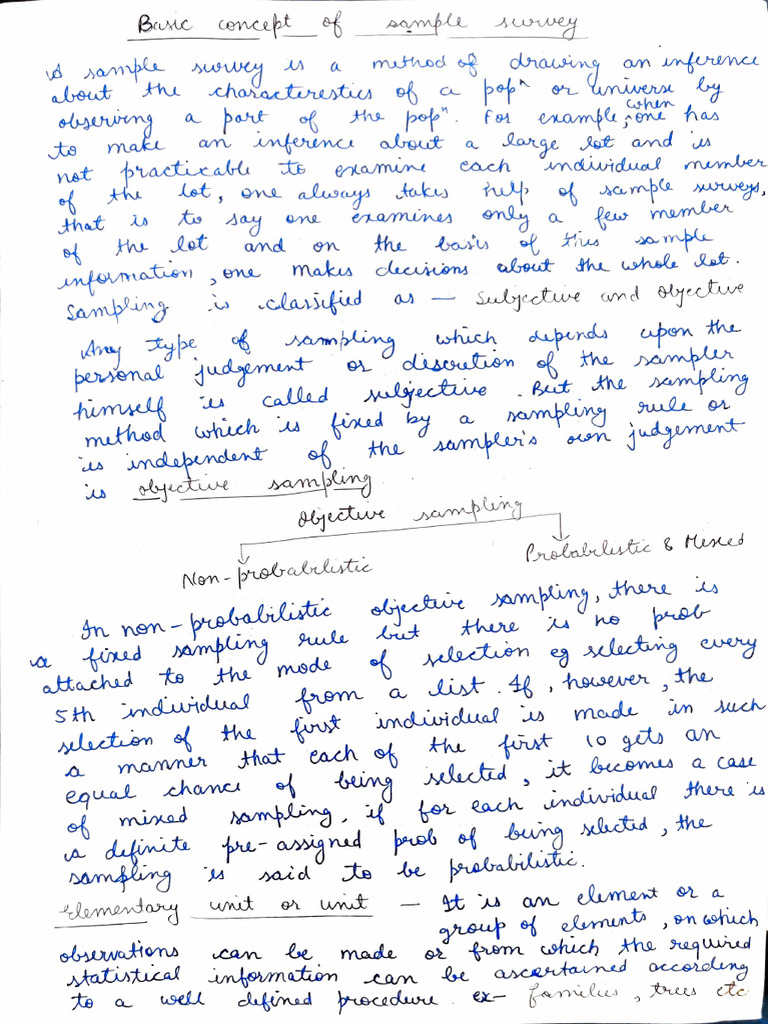 Basic concept of sample survey
A sample survey is a method of drawing an inference
about the characterestics of a popⁿ or universe by
observing a part of the popⁿ. For example, when one has
to make an inference about a large lot and is
not practicable to examine each individual member
of the lot, one always takes help of sample surveys,
that is to say one examines only a few member
of the lot and on the basis of this sample
information, one makes decisions about the whole lot.
Sampling is classified as — Subjective and Objective
Any type of sampling which depends upon the
personal judgement or discretion of the sampler
himself is called subjective. But the sampling
method which is fixed by a sampling rule or
is independent of the sampler's own judgement
is objective sampling
Objective sampling
Non-probabilistic
Probabilistic & Mixed
In non-probabilistic objective sampling, there is
a fixed sampling rule but there is no prob
attached to the mode of selection eg selecting every
5th individual from a list. If, however, the
selection of the first individual is made in such
a manner that each of the first 10 gets an
equal chance of being selected, it becomes a case
of mixed sampling, if for each individual there is
a definite pre-assigned prob of being selected, the
sampling is said to be probabilistic.
Elementary unit or unit — It is an element or a
group of elements, on which
observations can be made or from which the required
statistical information can be ascertained according
to a well defined procedure. ex- families, trees etc